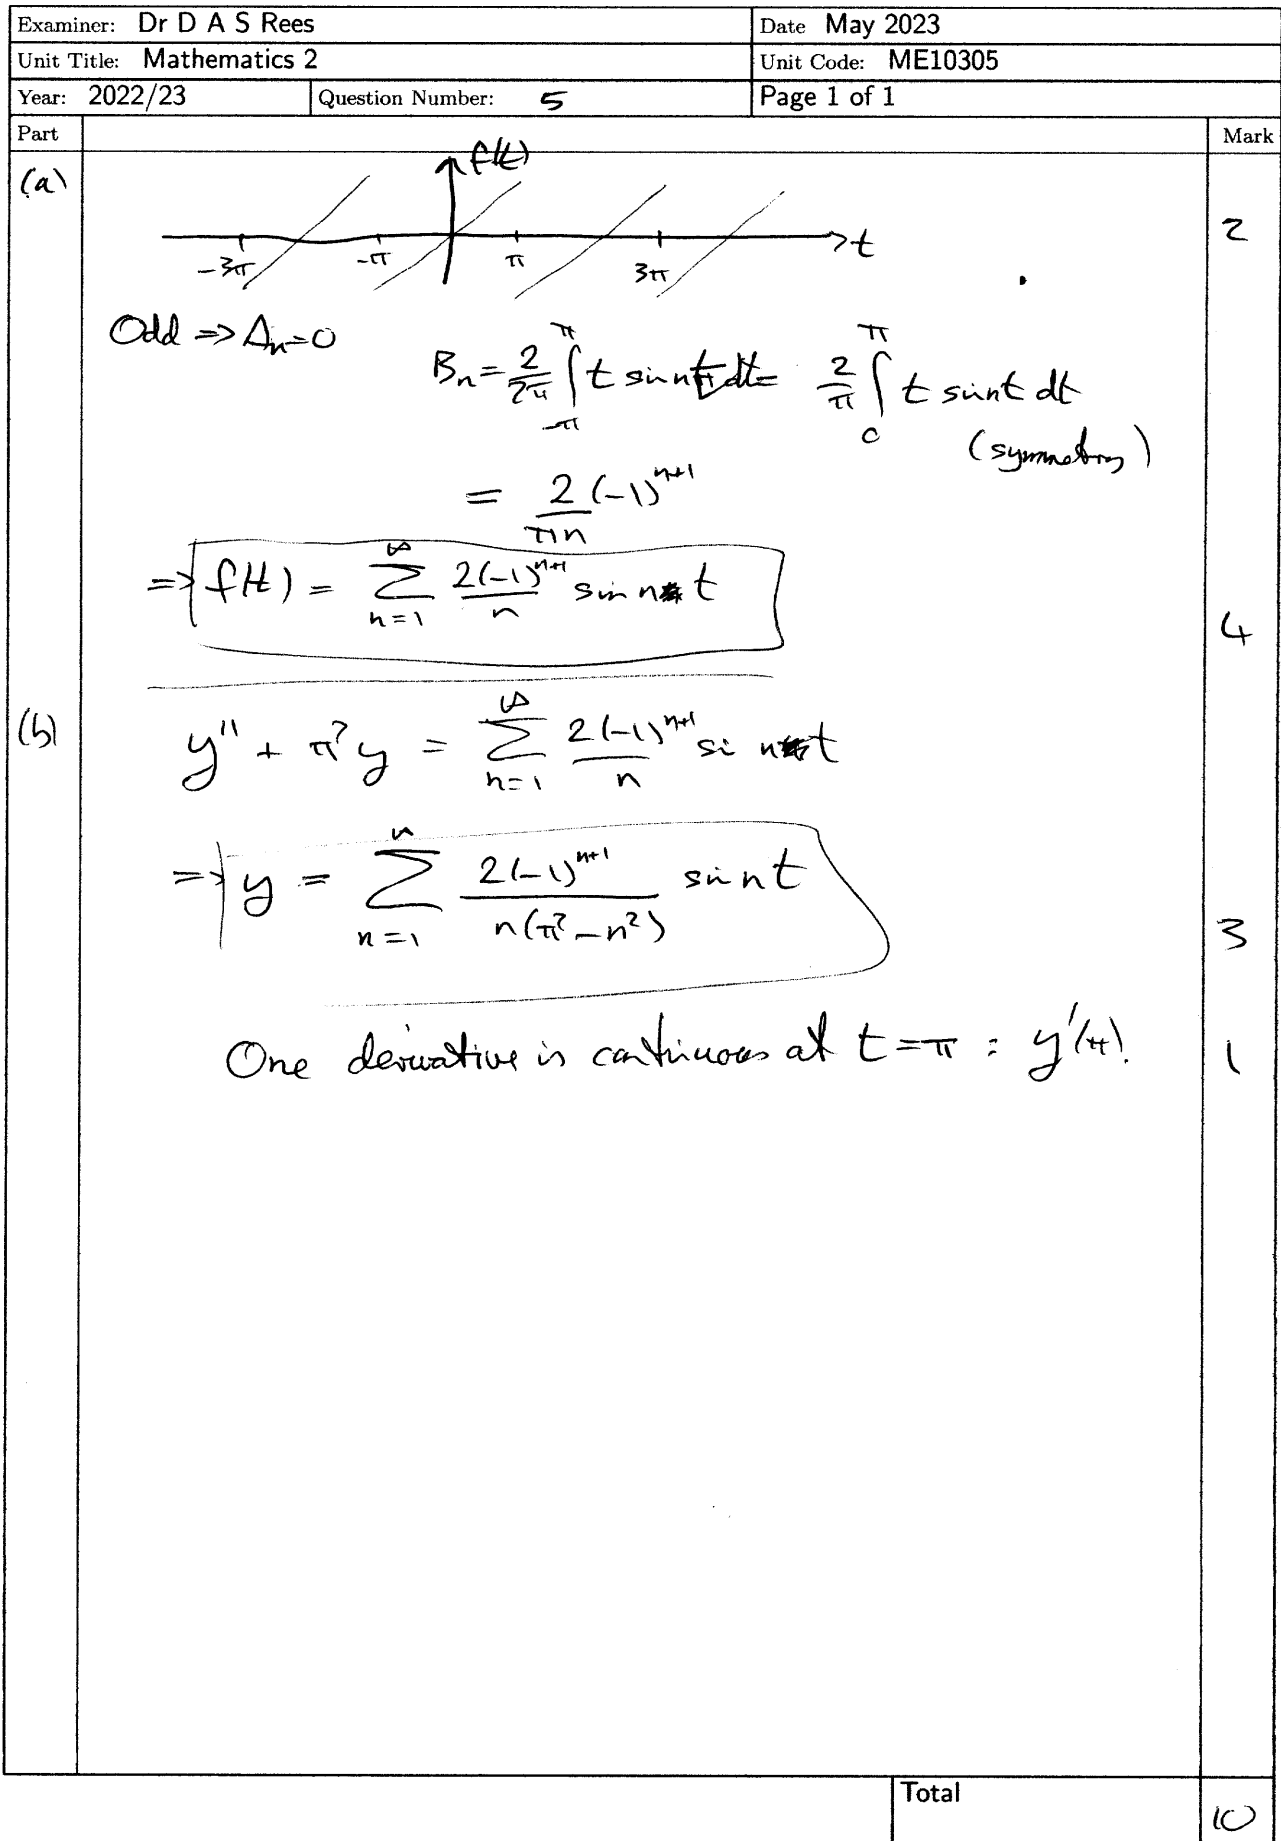 Examiner: Dr D A S Rees Date May 2023
Unit Title: Mathematics 2 Unit Code: ME10305
Year: 2022/23 Question Number: 5 Page 1 of 1
Part Mark
(a) f(t)
-3π -π π 3π t 2
Odd => An=0
Bn = 2/2π ∫_{-π}^{π} t sin nt dt = 2/π ∫_{0}^{π} t sin nt dt
(symmetry)
= 2/πn (-1)^{n+1}
=> f(t) = ∑_{n=1}^{∞} 2(-1)^{n+1}/n sin n t 4
(b) y'' + π² y = ∑_{n=1}^{∞} 2(-1)^{n+1}/n si n t
=> y = ∑_{n=1}^{∞} 2(-1)^{n+1}/n(π²-n²) sin nt 3
One derivative is continuous at t=π : y'(π). 1
Total 10